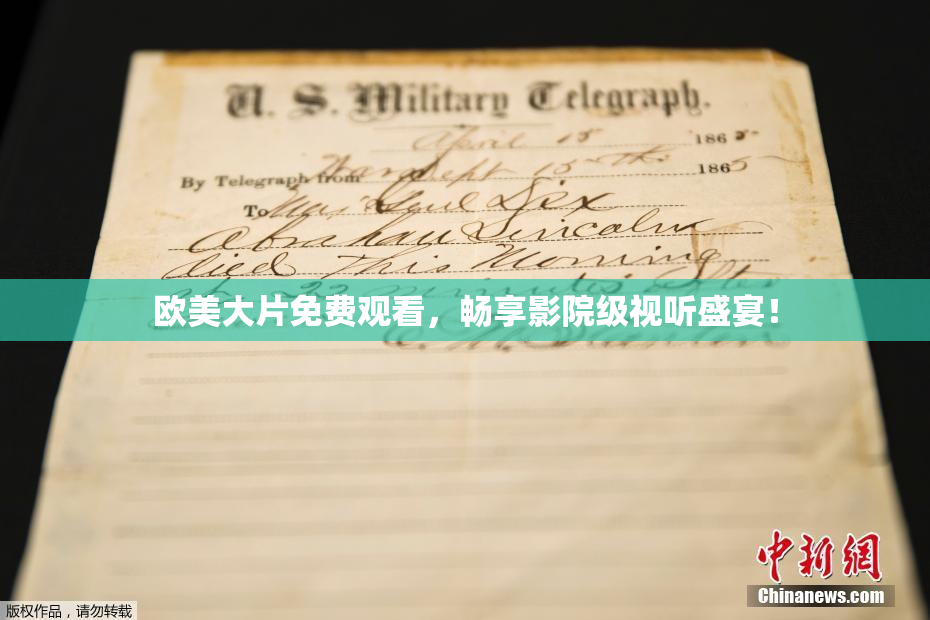 U. S. Military Telegraph.
April 15 1865
By Telegraph from War Dept 15th 1865
To Maj Genl Dix
Abraham Lincoln
died This Morning
at 22 minutes after
欧美大片免费观看，畅享影院级视听盛宴！
中新网
Chinanews.com
版权作品，请勿转载